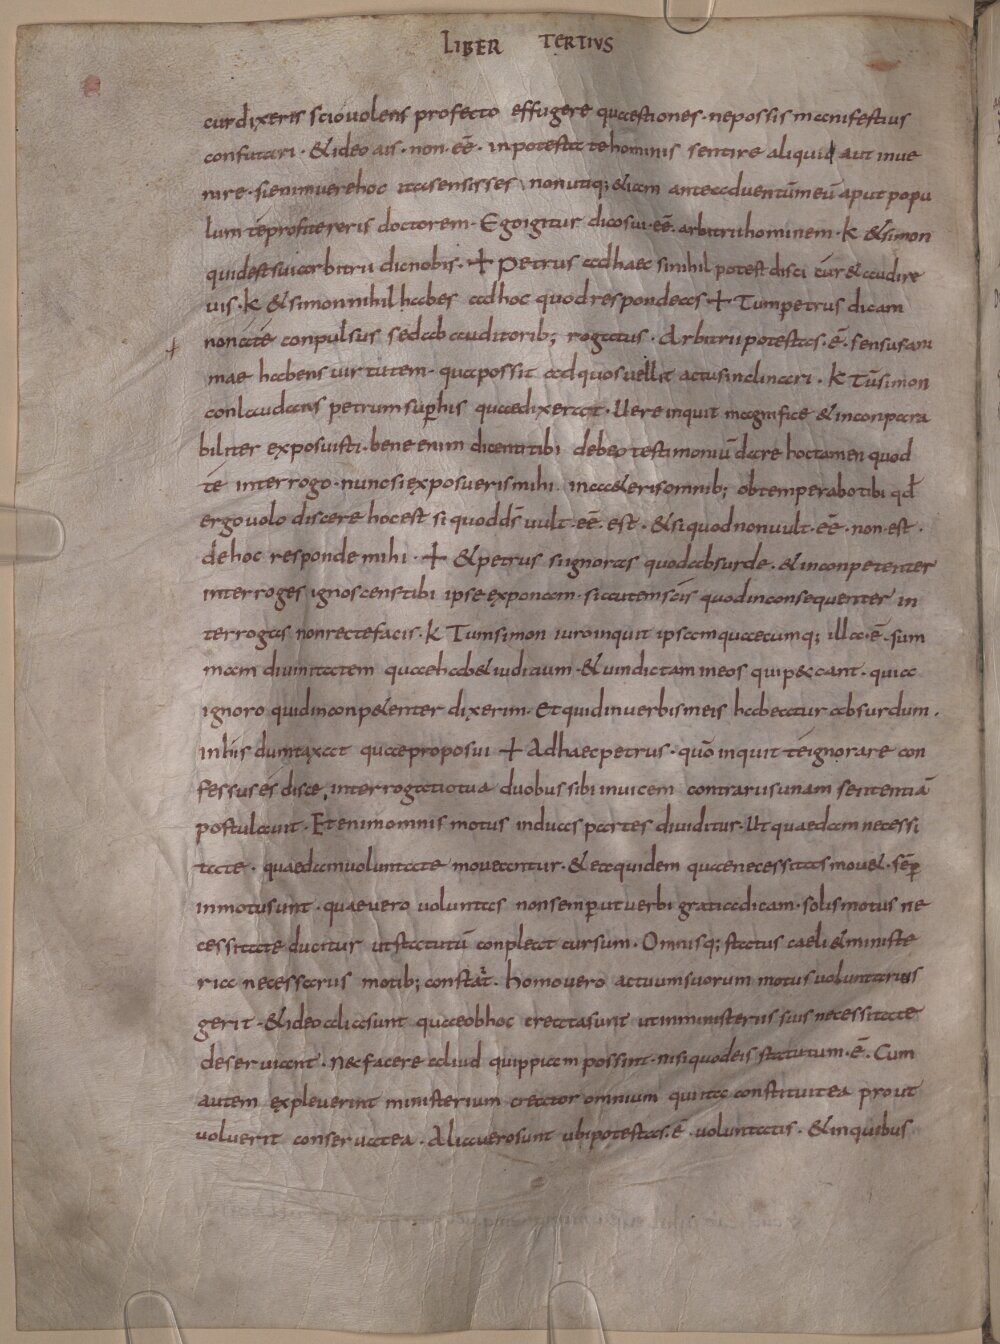 LIBER TERTIUS
cur dixeris scio volens profecto effugere quaestiones · ne possis manifestius
confutari · & ideo ais · non · eē · in potestate hominis sentire aliquid aut inve
nire · si enim vere hoc ita sensisses non utiq; & iam ante adventū meū aput popu
lum té profitereris doctorem · Ego igitur dico sui · eē · arbitrii hominem · K & simon
quid est sui arbitrii dic nobis · + Petrus ad haec si nihil potest disci cúr & audire
vis · K & simon nihil habes ad hoc quod respondeas + Tum petrus dicam
non a té conpulsus sed ab auditorib; rogatus · Arbitrii potestas · ē · sensus ani
mae habens virtutem · qua possit ad quos vellit actus inclinari · K Tū simon
conlaudans petrum sup his quae dixerat · Vere inquit magnifice & inconpara
biliter exposuisti · bene enim dicenti tibi debeo testimoniū dare hoc tamen quod
té interrogo · nunc si exposueris mihi in ceteris omnib; obtemperabo tibi qđ
ergo volo discere hoc est si quod dś vult · eē · est · & si quod non vult · eē · non · est ·
de hoc responde mihi · + & petrus si ignoras quod absurde · & inconpetenter
interroges ignoscens tibi ipse exponam · si autem scis quod inconsequenter in
terrogas non recte facis · K Tum simon iuro inquit ipsam quaecumq; illa · ē · sum
mam divinitatem quae hab& iuditium · & vindictam in eos qui peccant · quia
ignoro quid inconpetenter dixerim · Et quid in verbis meis habeatur absurdum ·
in his dumtaxat quae proposui + Ad haec petrus · quō inquit té ignorare con
fessus és disce, interrogatio tua duobus sibi invicem contrariis unam sententiā
postulavit · Etenim omnis motus in duas partes dividitur · Ut quaedam necessi
tate · quaedam voluntate moveantur · & ea quidem quae necessitas mov& · sēp
in motu sunt · quae vero voluntas non semp ut verbi gratia dicam · solis motus ne
cessitate ducitur ut statutū conpleat cursum · Omnisq; status caeli & ministe
ria necessariis motib; constat · homo vero actuum suorum motus voluntarius
gerit · & ideo alia sunt quae ob hoc creata sunt ut in ministeriis suis necessitate
deserviant · nec facere aliud quippiam possint · nisi quod eis statutum · ē · Cum
autem expleverint ministerium creator omnium qui ita constituit ea prout
voluerit conservat ea · Alia vero sunt ubi potestas · ē · voluntatis · & in quibus